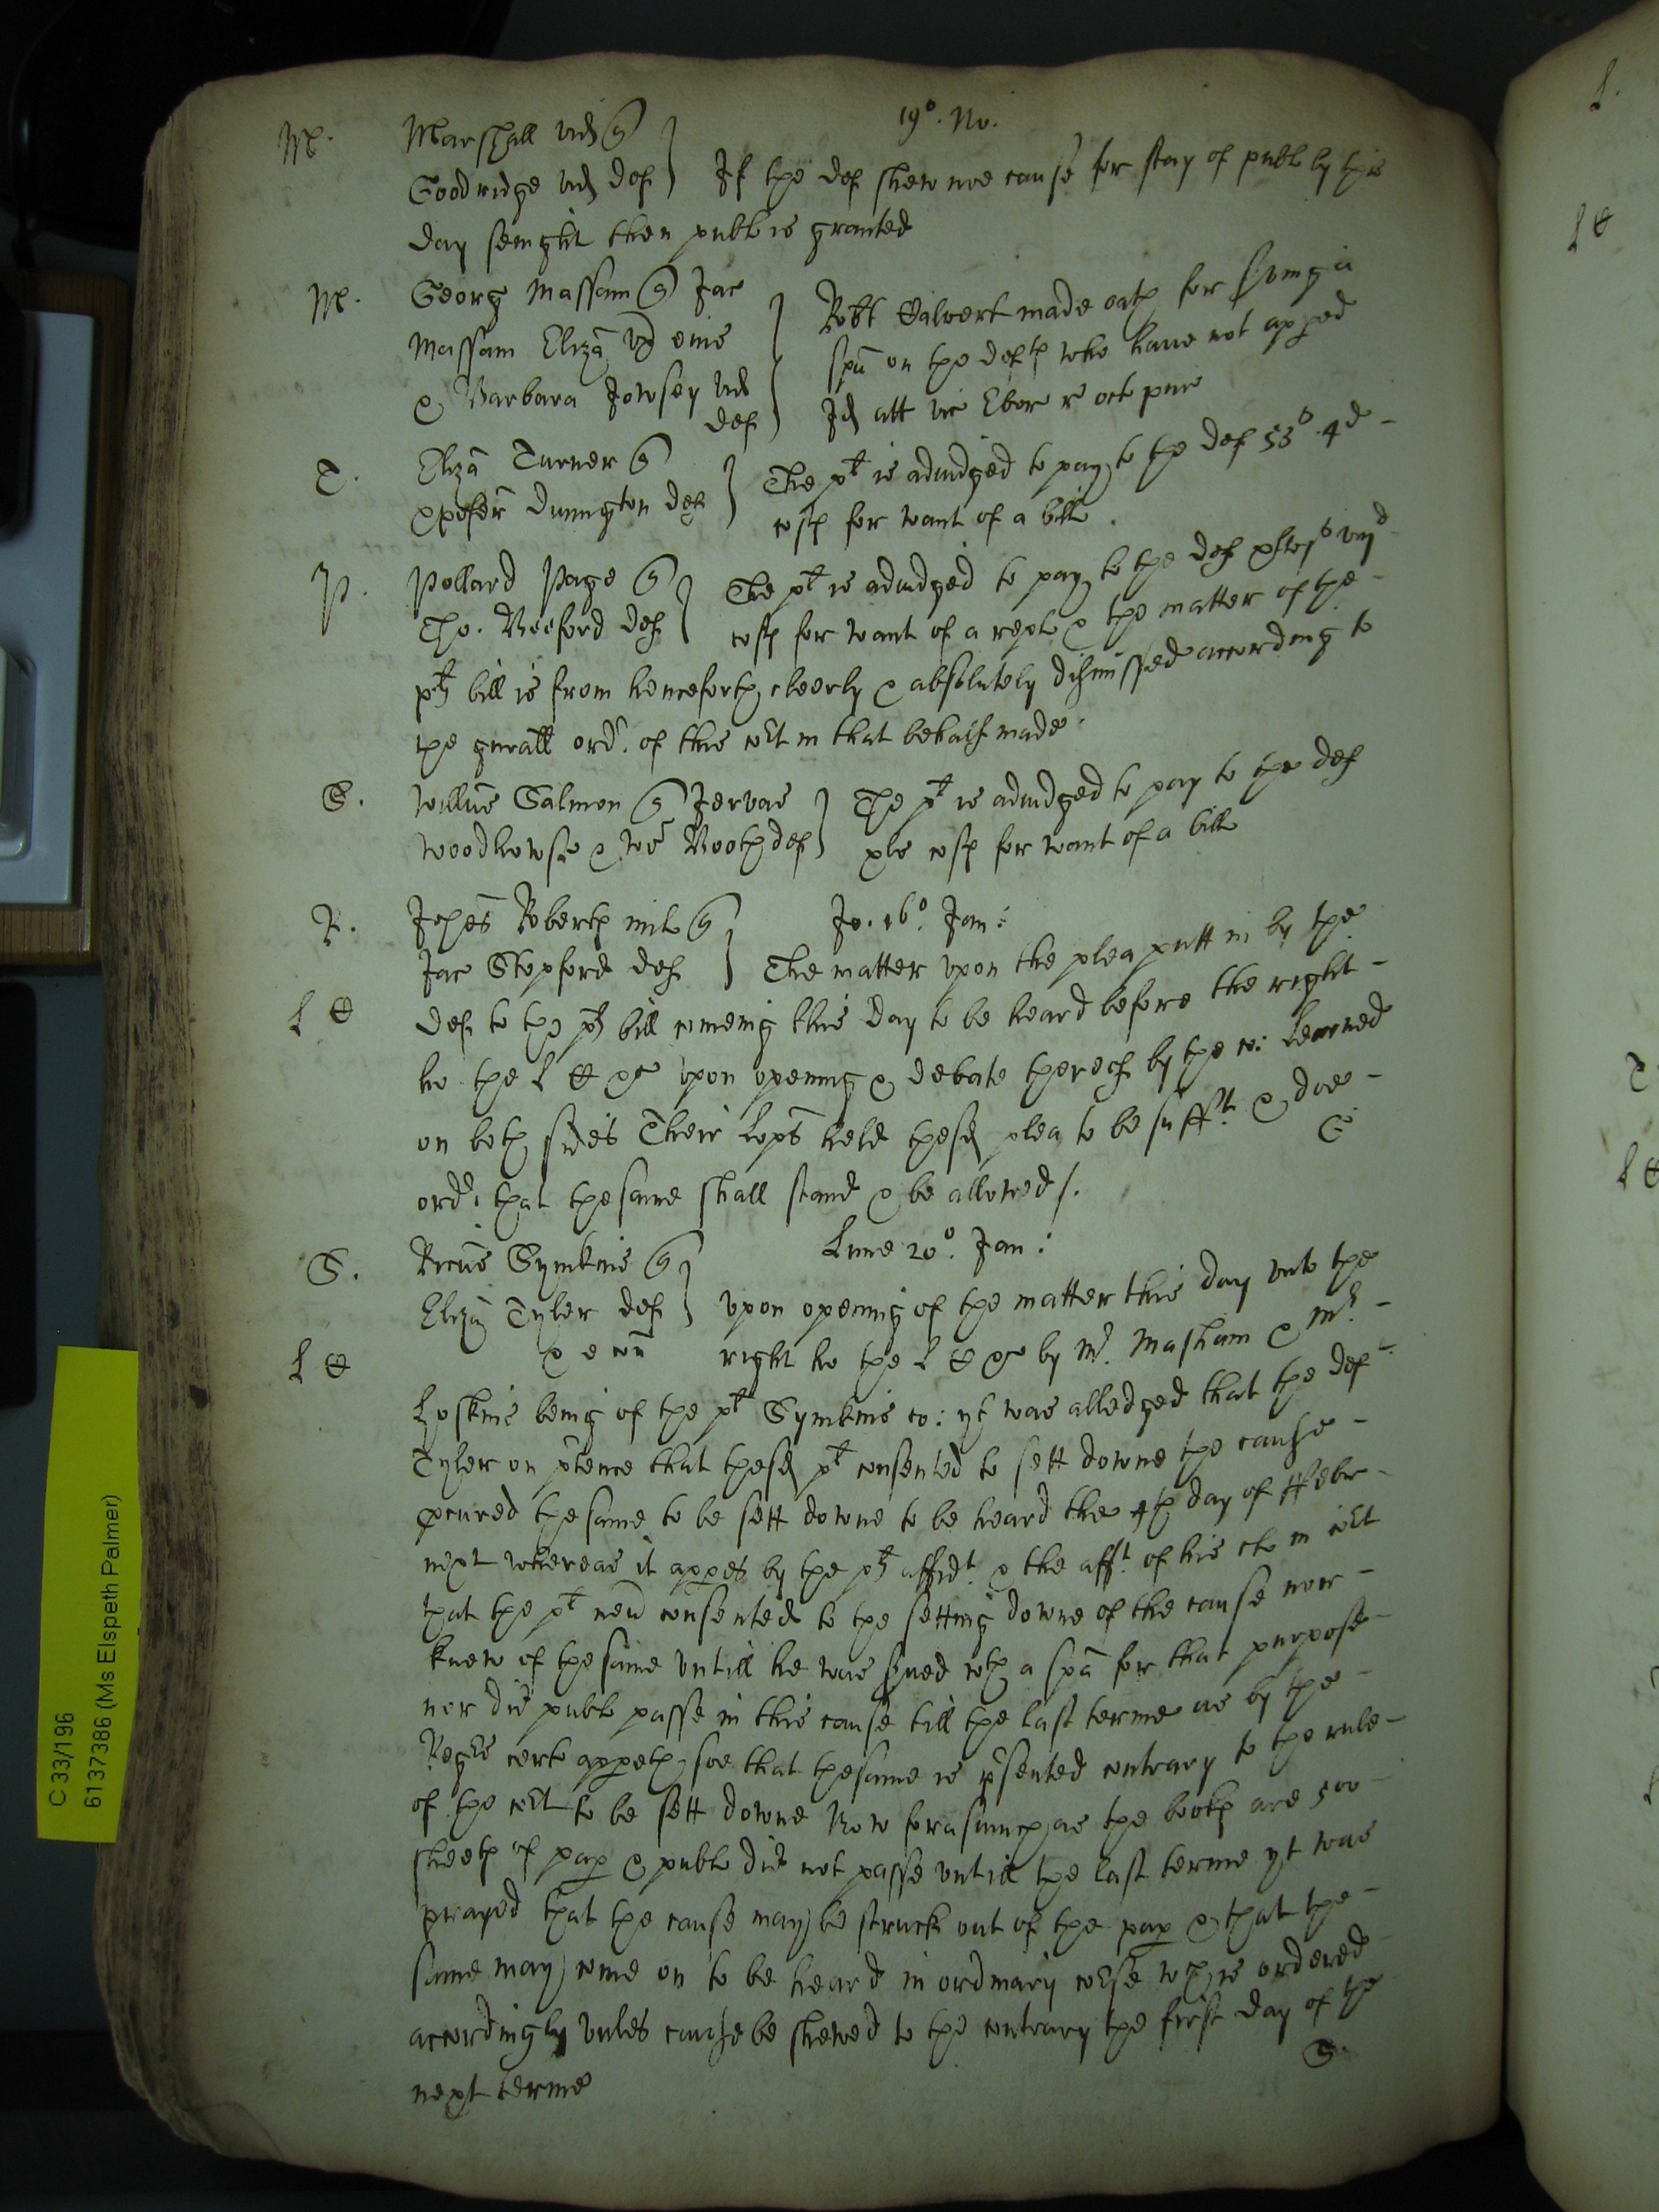 19o. No.
M. Marshall vid q
Goodridge vid def } If the def shew noe cause for stay of publ by this
day senight then publ is granted
M. Georg Massam q Jac
Massam Eliza ux eius
& Barbara Jowsey vid
def
Robt Calvert made oath for sving a
spa on the defts who have not apped
Id att vic Ebor r oct pur
T. Eliza Turner q
xpofer Dunington def } The plt is adiudged to pay to the def 53s 4d
costs for want of a bill.
P. Pollard Page q
Tho. Beeford def } The plt is adiudged to pay to the def viijd
costs for want of a repl & the matter of the
plts bill is from henceforth cleerly & absolutely dismissed according to
the gnall ord. of this cort in that behalf made.
S. Willus Salmon q Jervas
Woodhowse & Wm Booth def } The plt is adiudged to pay to the def
xls costs for want of a bill
R. Johes Roberts mil q
Jac Stopford def } Jo. 16o Jan:
The matter upon the plea putt in by the
L C def to the plts bill comeing this day to be heard before the right
ho the L C &c upon opening & debate thereof by the co: learned
on both sides Their Lopps held the sd plea to be sufft. & doe
ord. that the same shall stand & be allowed /.
G
S. Ricus Symkins q
Eliza Tyler def
& e con
Lune 20o. Jan:
upon opening of the matter this day unto the
L C right ho the L C &c by Mr. Masham & Mr.
Hoskins being of the plt Symkins co: yt was alledged that the def
Tyler on ptence that the sd plt consented to sett downe the cause
pcured the same to be sett downe to be heard the 4th day of ffebr
next whereas it appes by the plts affidt. & the afft. of his clo in cort
that the plt nevr consented to the setting downe of the cause nor
knew of the same untill he was sved wth a spa for that purpose
nor did publ passe in this cause till the last terme as by the
Regrs cert appeth, soe that the same is psented contrary to the rule
of the cort to be sett downe Now forasmuch as the books are 500
sheets of pap & publ did not passe untill the last terme yt was
prayed that the cause may be struck out of the pap & that the
same may come on to be heard in ordinary corse wch is ordered
accordingly unles cause be shewed to the contrary the first day of the
next terme
S.
C 33/196
6137386 (Ms Elspeth Palmer)